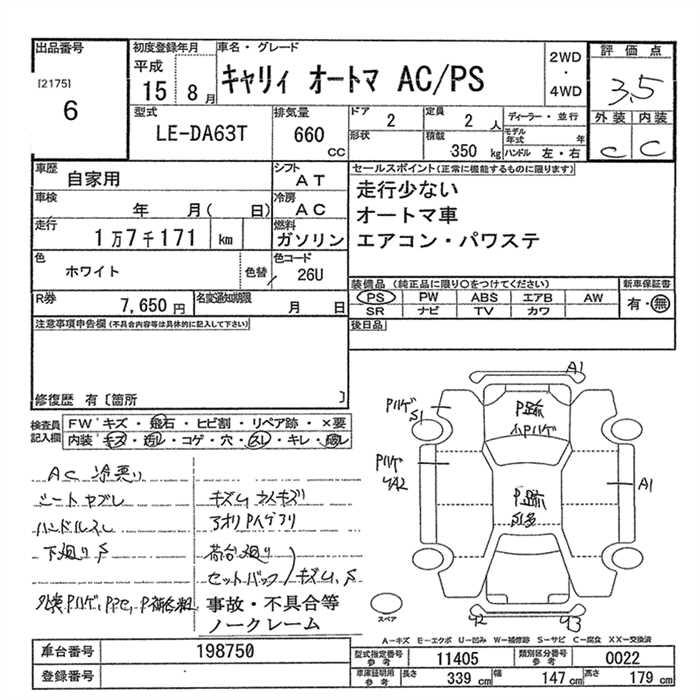 出品番号
[2175]
6
初度登録年月
平成
15 8月
車名・グレード
キャリィ オートマ AC/PS
2WD
・
4WD
評価点
3.5
外装 内装
C C
型式
LE-DA63T
排気量
660
CC
ドア 2
定員 2 人
形状
積載 350 kg
ディーラー・並行
モデル年式 年
ハンドル 左・右
車歴
自家用
シフト
AT
車検
年 月( 日)
冷房
AC
走行
1万7千171 km
燃料
ガソリン
色
ホワイト
色替
色コード
26U
セールスポイント(正常に機能するものに限ります)
走行少ない
オートマ車
エアコン・パワステ
装備品 (純正品に限り○をつけてください)
PS PW ABS エアB AW
SR ナビ TV カワ
新車保証書
有・無
後日品
R券
7,650円
名変通知期限
月 日
注意事項申告欄(不具合内容等は具体的に記入して下さい)
修復歴 有〔箇所 〕
検査員記入欄
FW キズ・飛石・ヒビ割・リペア跡・×要
内装 キズ・汚レ・コゲ・穴・スレ・キレ・臨レ
AC 冷悪り
シートヤブレ
ハンドルスレ
下廻りS
キズUタメキズ
アオリPハゲフリ
荷台廻り
セットバック
キズU、S
事故・不具合等
ノークレーム
A1
Pハゲ
S1
P跡
小Pハゲ
Pハゲ
YA2
A1
P跡
S1多
Y2
Y3
スペア
A-キズ E-エクボ U-凹み W-補修跡 S-サビ C-腐食 XX-交換済
車台番号 198750
登録番号
型式指定番号参考 11405
類別区分番号参考 0022
車庫証明用参考 長さ 339 cm 幅 147 cm 高さ 179 cm